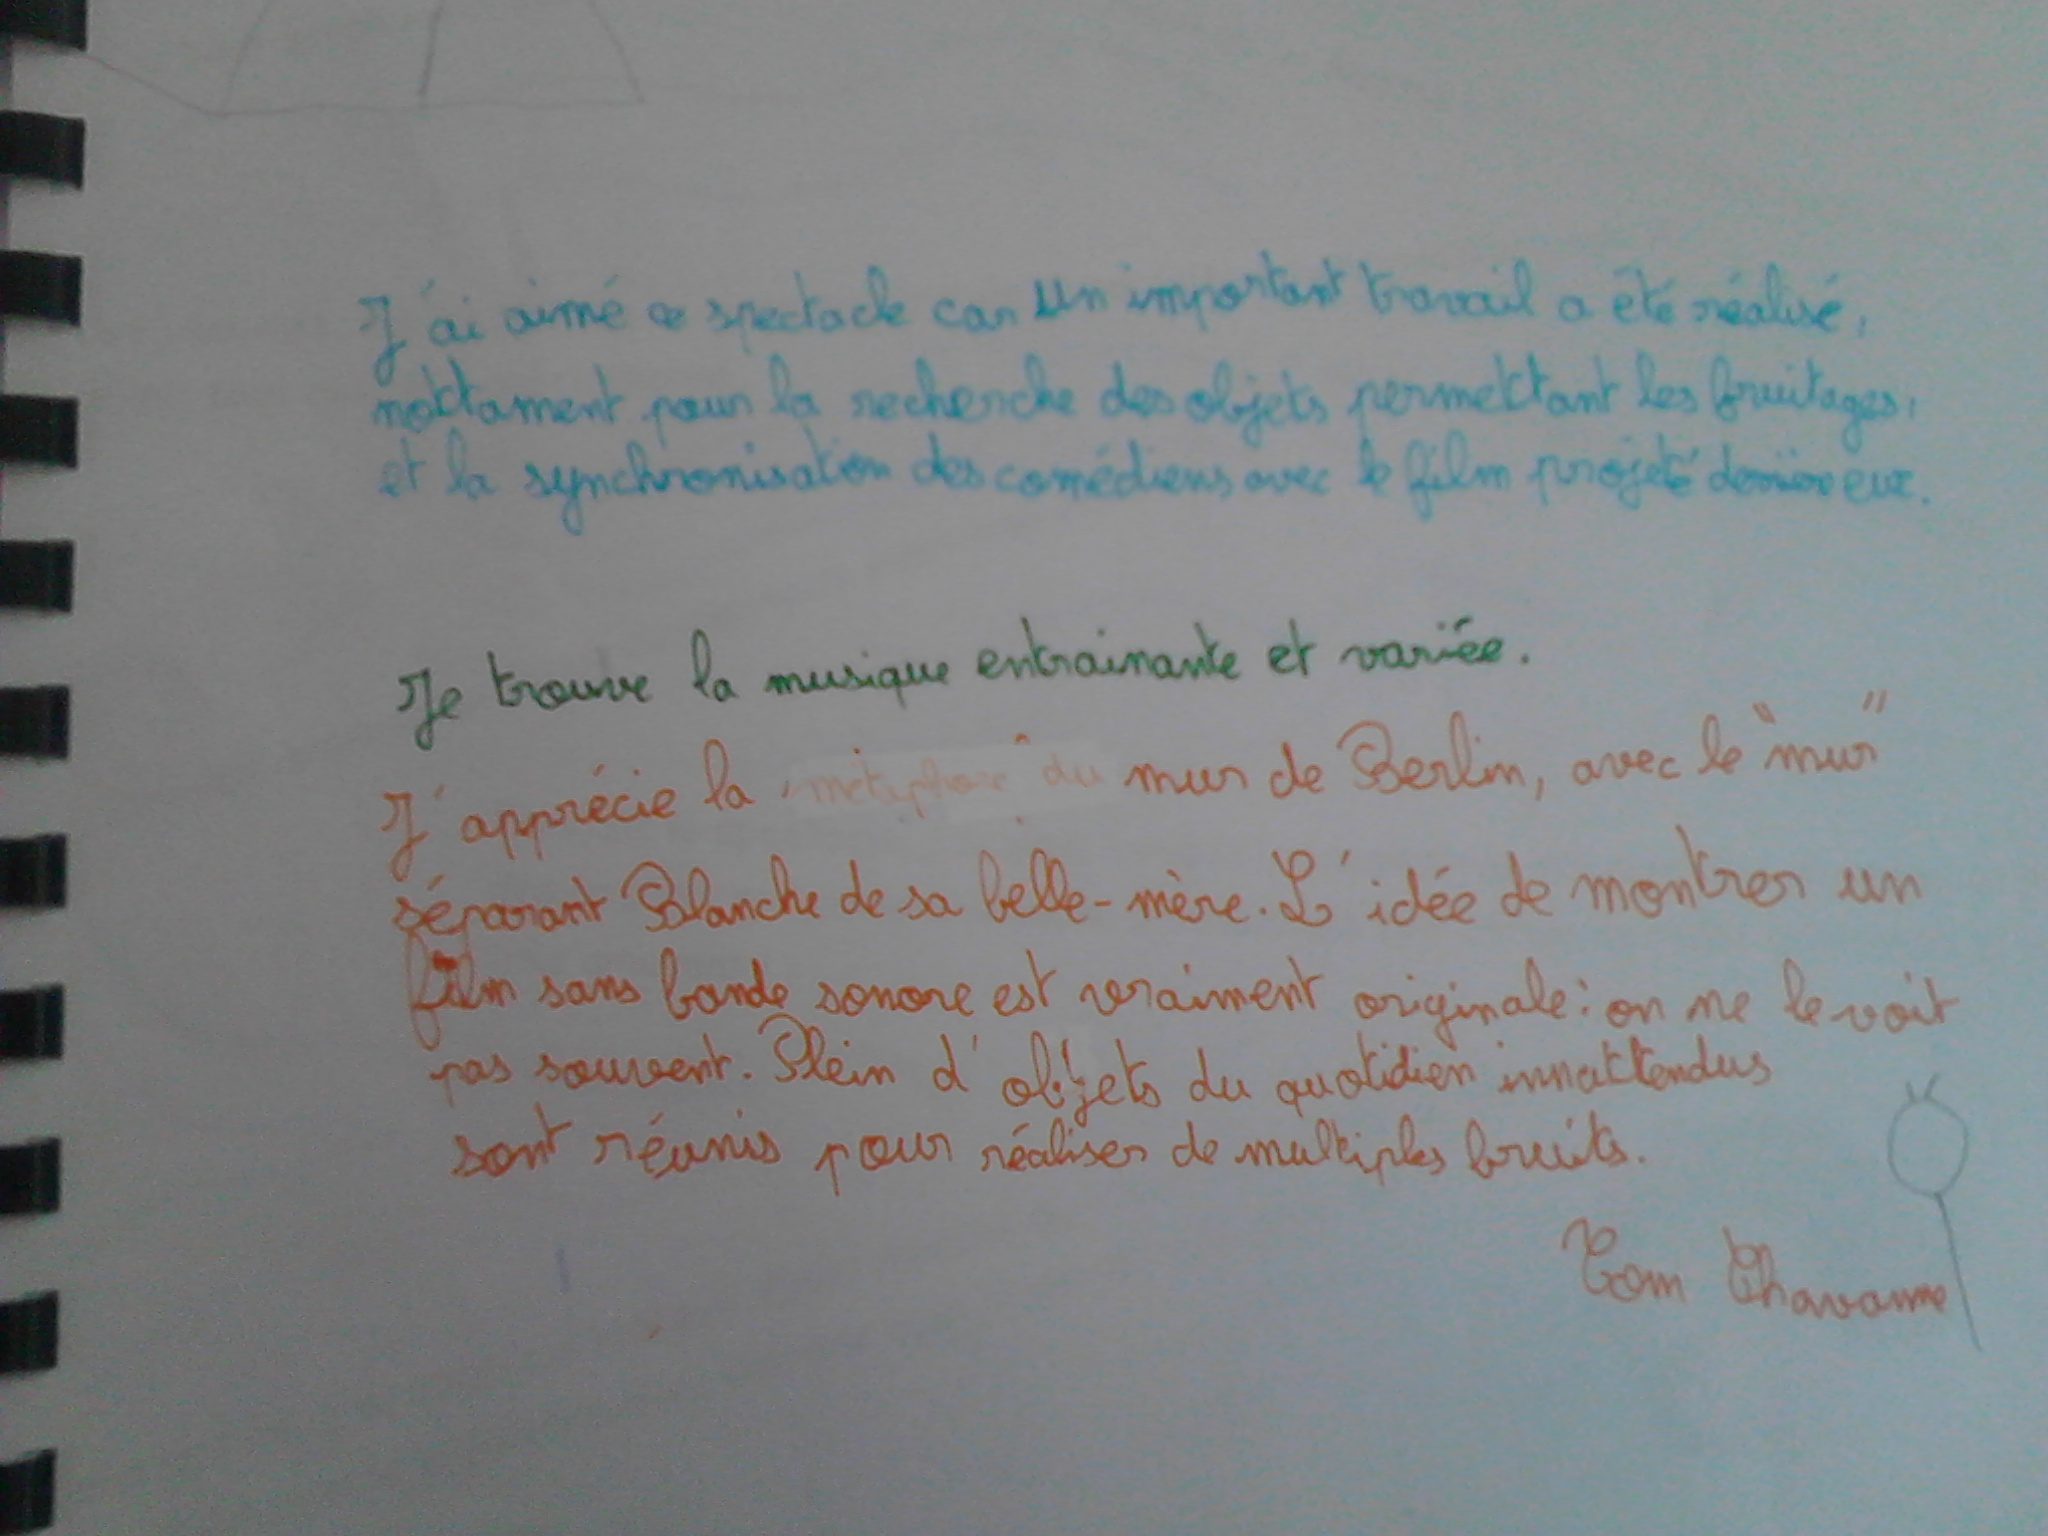 J'ai aimé ce spectacle car un important travail a été réalisé,
nottament pour la recherche des objets permettant les bruitages,
et la synchronisation des comédiens avec le film projeté derrière eux.
Je trouve la musique entrainante et variée.
J'apprécie la métaphore du mur de Berlin, avec le "mur"
séparant Blanche de sa belle-mère. L'idée de montrer un
film sans bande sonore est vraiment originale : on ne le voit
pas souvent. Plein d'objets du quotidien innattendus
sont réunis pour réaliser de multiples bruits.
Tom Chavanne